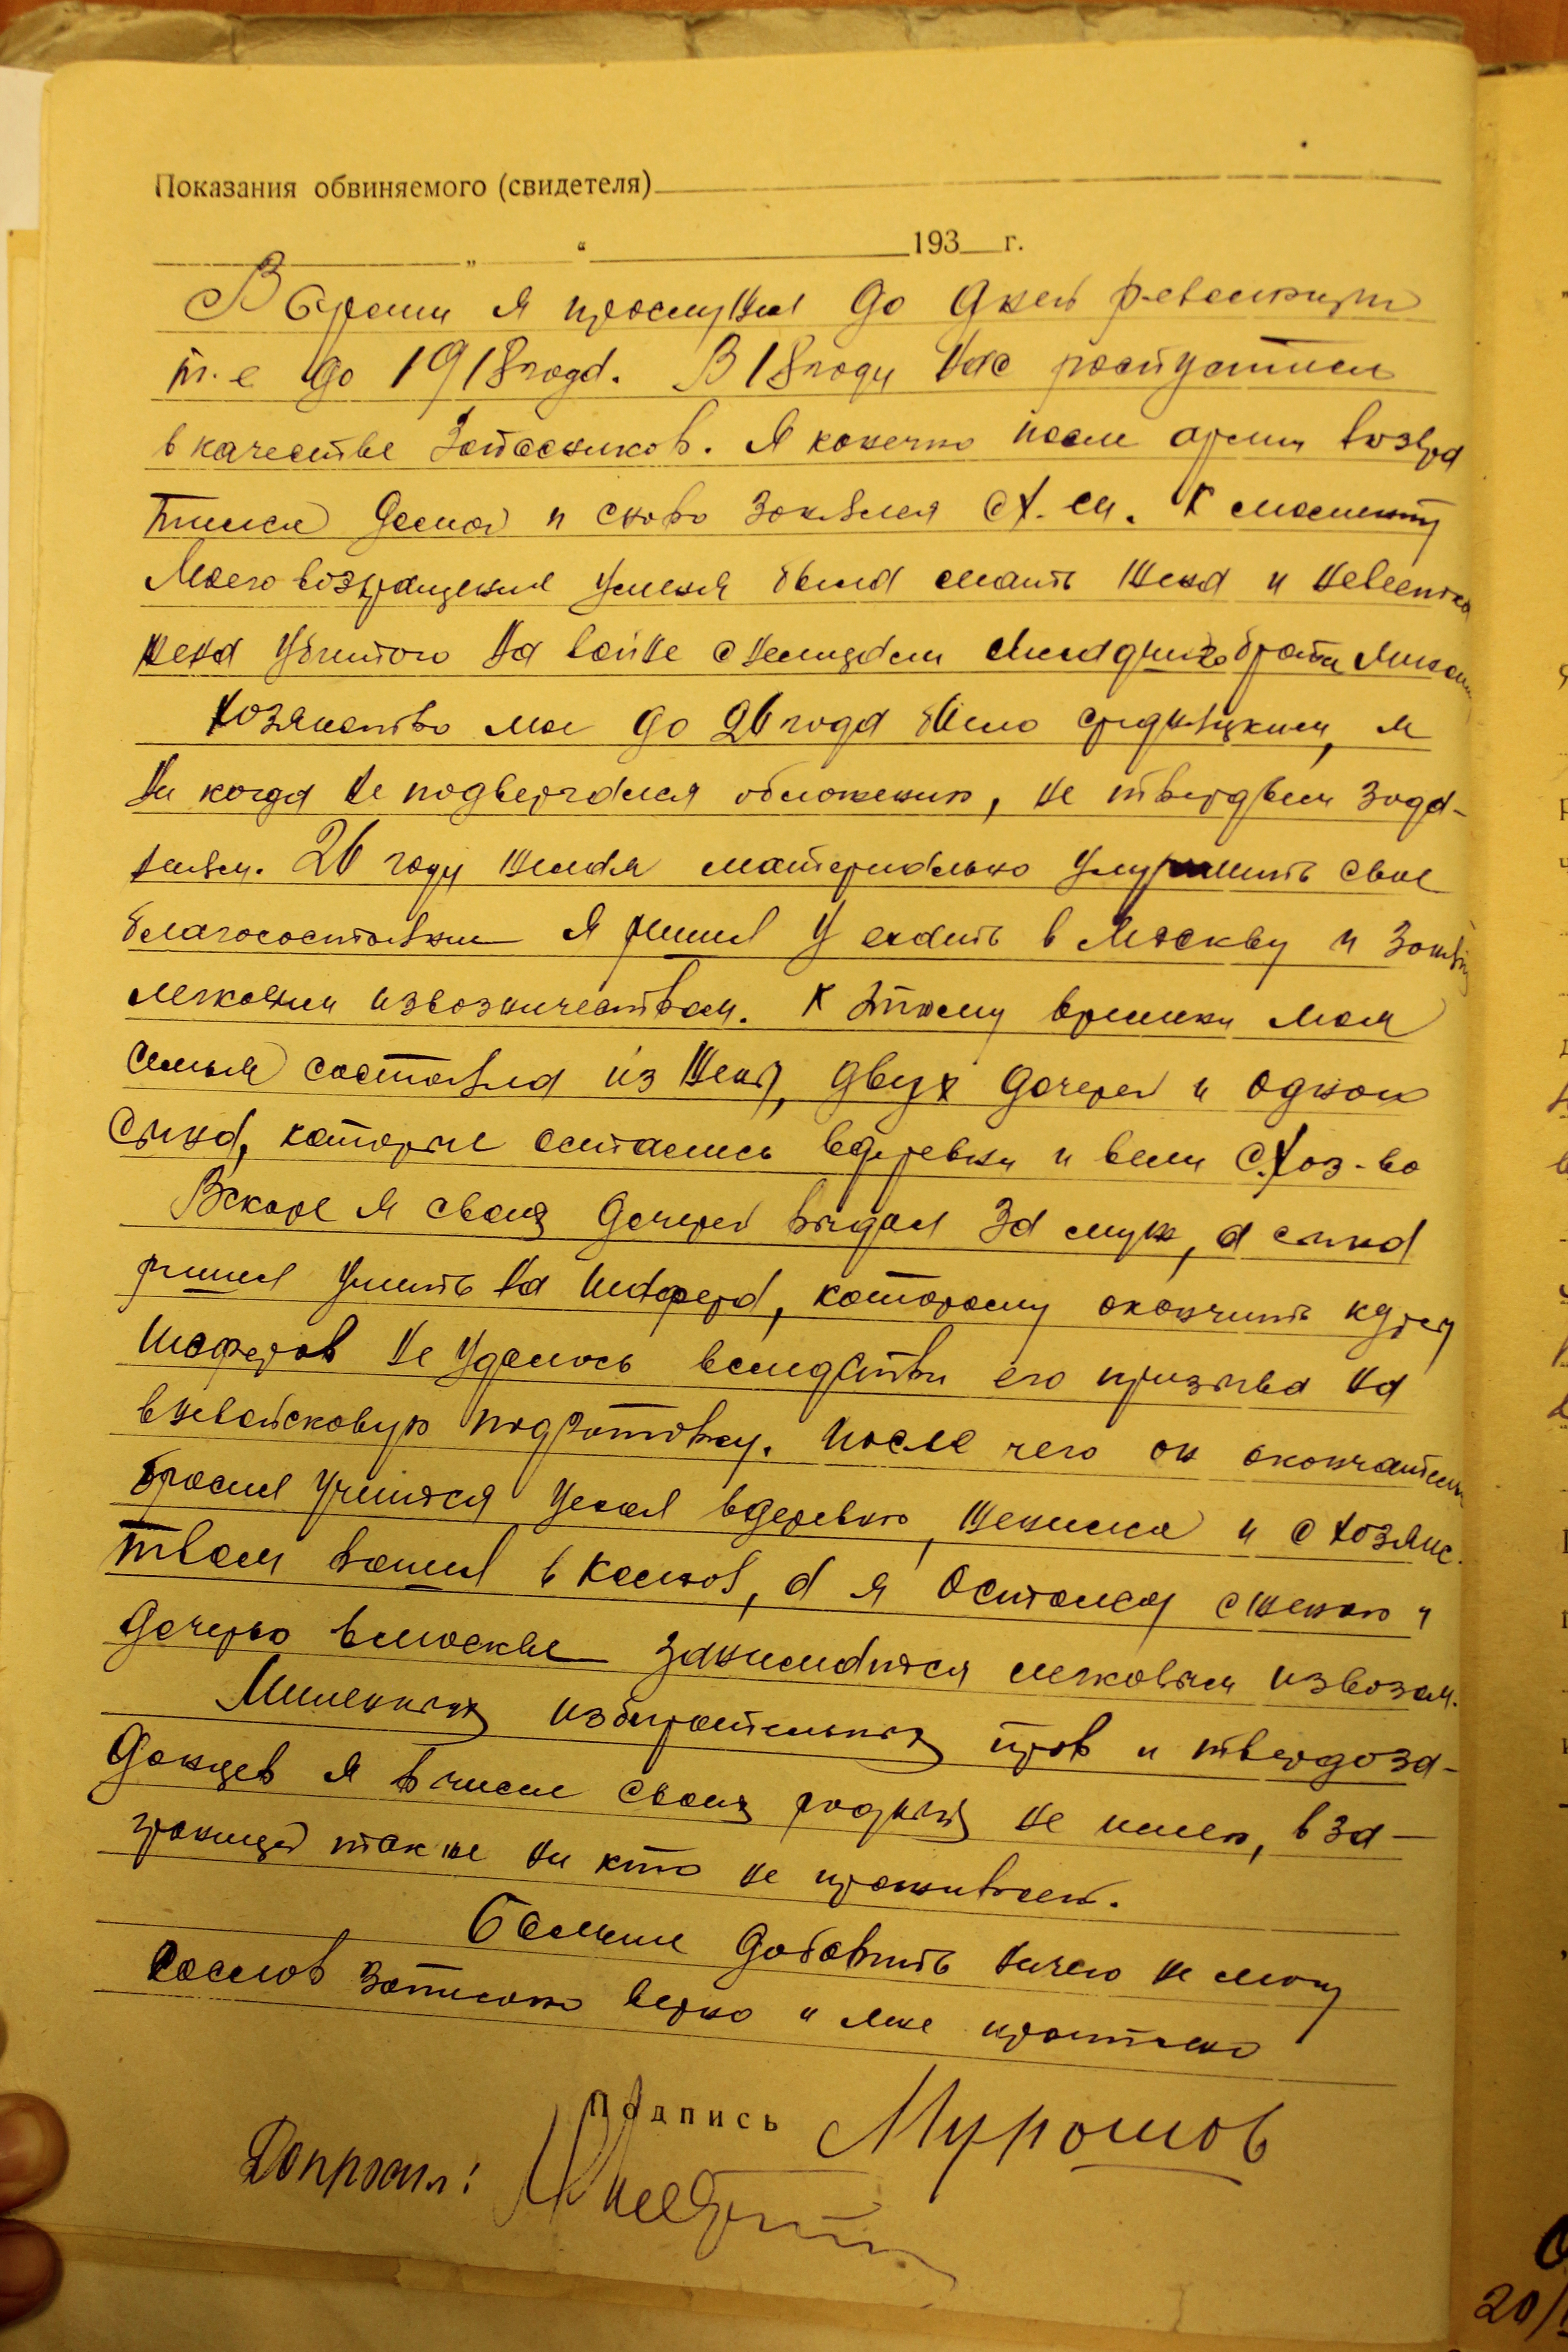 Показания обвиняемого (свидетеля)
„ “ 193 г.
В армии я прослужил до дней революции
т.е до 1918 года. В 18 году нас роспустили
в качестве запасников. Я конечно после армии возвра
тился домой и снова занялся с/х-ом. К моменту
Моего возвращения у меня была мать жена и невестка
жена убитого на войне с немцами младшего брата
Хозяйство мое до 26 года было средняцким, и
ни когда не подвергался обложению, не твердым зада-
ниям. 26 году желая материально улучшить свое
благосостояние я решил уехать в Москву и
легковым извозничеством. К этому времени моя
семья состояла из жены, двух дочерей и одного
сына, которые остались в деревни и вели с.хоз-во
Вскоре я своих дочерей выдал за муж, а сына
решил учить на шофера, которому окончить курсы
шоферов не удалось вследстви его призыва на
вневойсковую подготовку. После чего он окончательно
бросил учится уехал в деревню, женился и с хозяйс-
твом вошел в колхоз, а я остался с женою и
дочерью в москве заниматся легковым извозом.
Лишенных избирательных прав и твердоза-
данцев я в числе своих родных не имею, в за-
границей также ни кто не проживает.
Больше добавить ничего не могу
с слов записано верно и мне прочитано
Подпись Мурашов
Допросил:
20/